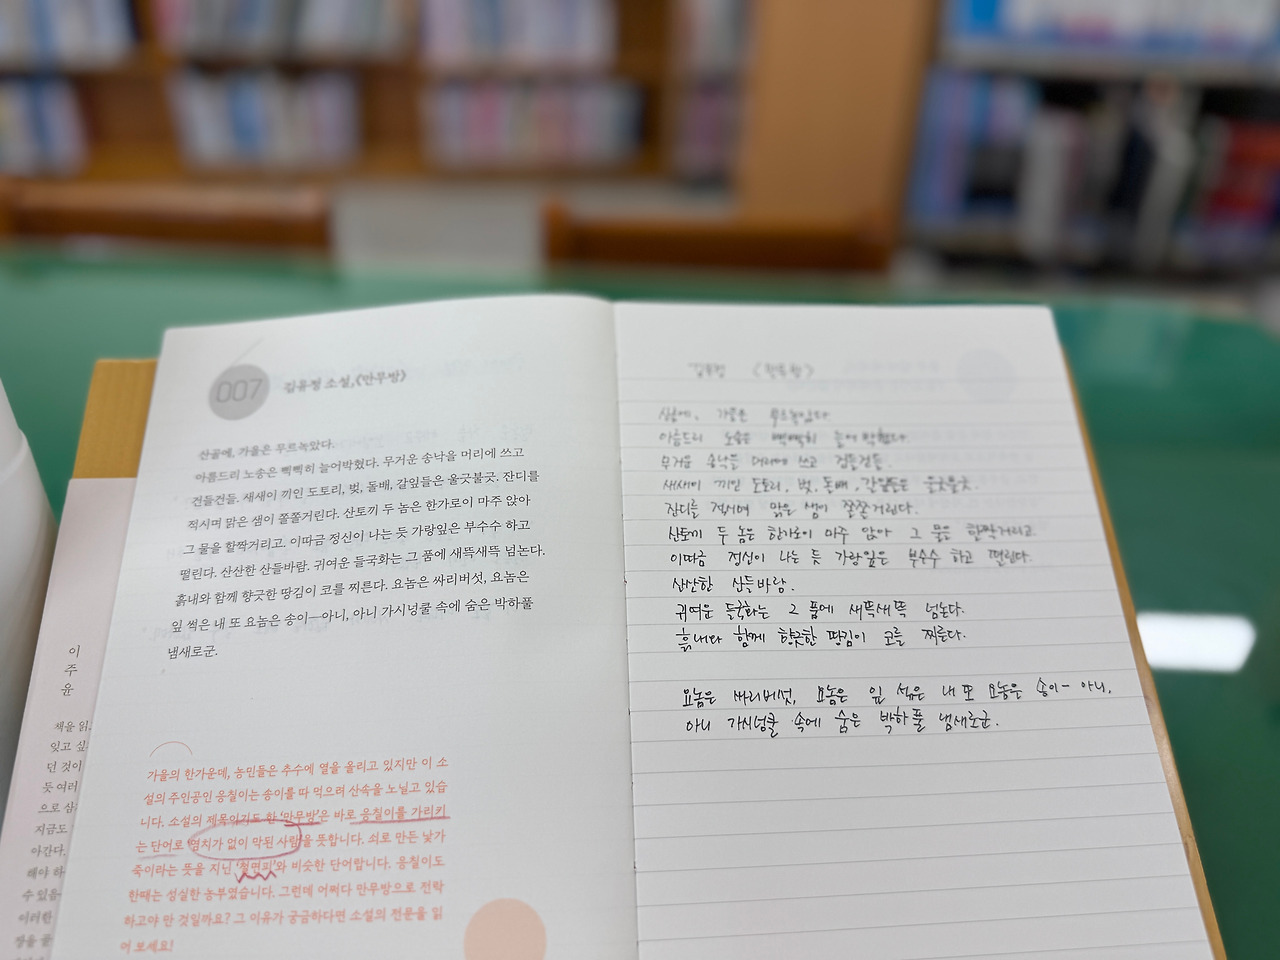 007
김유정 소설, 《만무방》
산골에, 가을은 무르녹았다.
아름드리 노송은 삑삑히 늘어박혔다. 무거운 송낙을 머리에 쓰고
건들건들. 새새이 끼인 도토리, 벚, 돌배, 갈잎들은 울긋불긋. 잔디를
적시며 맑은 샘이 쫄쫄거린다. 산토끼 두 놈은 한가로이 마주 앉아
그 물을 할짝거리고. 이따금 정신이 나는 듯 가랑잎은 부수수 하고
떨린다. 산산한 산들바람. 귀여운 들국화는 그 품에 새뜩새뜩 넘논다.
흙내와 함께 향긋한 땅김이 코를 찌른다. 요놈은 싸리버섯, 요놈은
잎 썩은 내 또 요놈은 송이―아니, 아니 가시넝쿨 속에 숨은 박하풀
냄새로군.
가을의 한가운데, 농민들은 추수에 열을 올리고 있지만 이 소
설의 주인공인 응칠이는 송이를 따 먹으려 산속을 노닐고 있습
니다. 소설의 제목이기도 한 '만무방'은 바로 응칠이를 가리키
는 단어로 '염치가 없이 막된 사람'을 뜻합니다. 쇠로 만든 낯가
죽이라는 뜻을 지닌 '철면피'와 비슷한 단어랍니다. 응칠이도
한때는 성실한 농부였습니다. 그런데 어쩌다 만무방으로 전락
하고야 만 것일까요? 그 이유가 궁금하다면 소설의 전문을 읽
어 보세요!
이
주
윤
책을 읽
잊고 싶
던 것이
듯 여러
으로 삼
지금도
야간다.
해야 하
수 있음
이러한
김유정 《만무방》
산골에, 가을은 무르녹았다
아름드리 노송은 삑삑히 늘어박혔다.
무거운 송낙을 머리에 쓰고 건들건들.
새새이 끼인 도토리, 벚, 돌배, 갈잎들은 울긋불긋.
잔디를 적시며 맑은 샘이 쫄쫄거린다.
산토끼 두 놈은 한가로이 마주 앉아 그 물은 할짝거리고.
이따금 정신이 나는 듯 가랑잎은 부수수 하고 떨린다.
산산한 산들바람.
귀여운 들국화는 그 품에 새뜩새뜩 넘논다.
흙내와 함께 향긋한 땅김이 코를 찌른다.
요놈은 싸리버섯, 요놈은 잎 썩은 내 또 요놈은 송이― 아니,
아니 가시넝쿨 속에 숨은 박하풀 냄새로군.